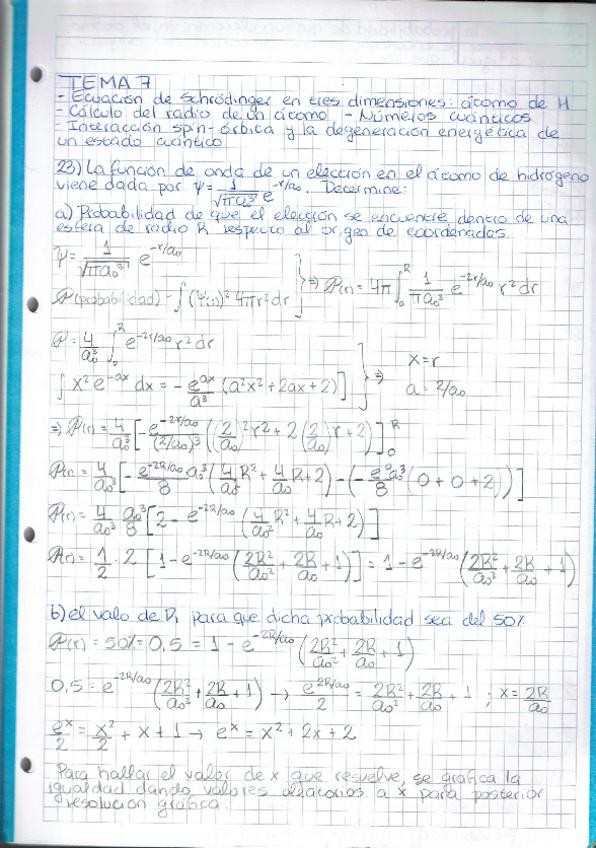 TEMA 7
- Ecuación de Schrödinger en tres dimensiones: átomo de H
- Cálculo del radio de un átomo - Números cuánticos
- Interacción spin-órbita y la degeneración energética de
un estado cuántico
23) La función de onda de un electrón en el átomo de hidrógeno
viene dada por ψ = 1/√(πa₀³) e^(-r/a₀). Determine:
a) Probabilidad de que el electrón se encuentre dentro de una
esfera de radio R respecto al origen de coordenadas.
ψ = 1/√(πa₀³) e^(-r/a₀)
P(probabilidad) = ∫(Ψ(r))² 4πr² dr } ⇒ P(r) = 4π ∫₀ᴿ 1/(πa₀³) e^(-2r/a₀) r² dr
P = 4/a₀³ ∫₀ᴿ e^(-2r/a₀) r² dr
∫ x² e^(-ax) dx = - e^(ax)/a³ (a²x² + 2ax + 2)] } ⇒ x = r a = 2/a₀
⇒ P(r) = 4/a₀³ [- e^(-2r/a₀)/(2/a₀)³ ((2/a₀)² r² + 2(2/a₀) r + 2)]₀ᴿ
P(r) = 4/a₀³ [- e^(-2R/a₀) a₀³/8 (4/a₀² R² + 4/a₀ R + 2) - (- e⁰a₀³/8 (0 + 0 + 2))]
P(r) = 4/a₀³ a₀³/8 [2 - e^(-2R/a₀) (4/a₀² R² + 4/a₀ R + 2)]
P(r) = 1/2 · 2 [1 - e^(-2R/a₀) (2R²/a₀² + 2R/a₀ + 1)] = 1 - e^(-2R/a₀) (2R²/a₀² + 2R/a₀ + 1)
b) el valo de R, para que dicha probabilidad sea del 50%
P(r) = 50% = 0,5 = 1 - e^(-2R/a₀) (2R²/a₀² + 2R/a₀ + 1)
0,5 = e^(-2R/a₀) (2R²/a₀² + 2R/a₀ + 1) → e^(2R/a₀)/2 = 2R²/a₀² + 2R/a₀ + 1 ; x = 2R/a₀
e^x/2 = x²/2 + x + 1 → e^x = x² + 2x + 2
Para hallar el valor de x que resuelve, se grafica la
igualdad dando valores aleatorios a x para posterior
resolución gráfica.